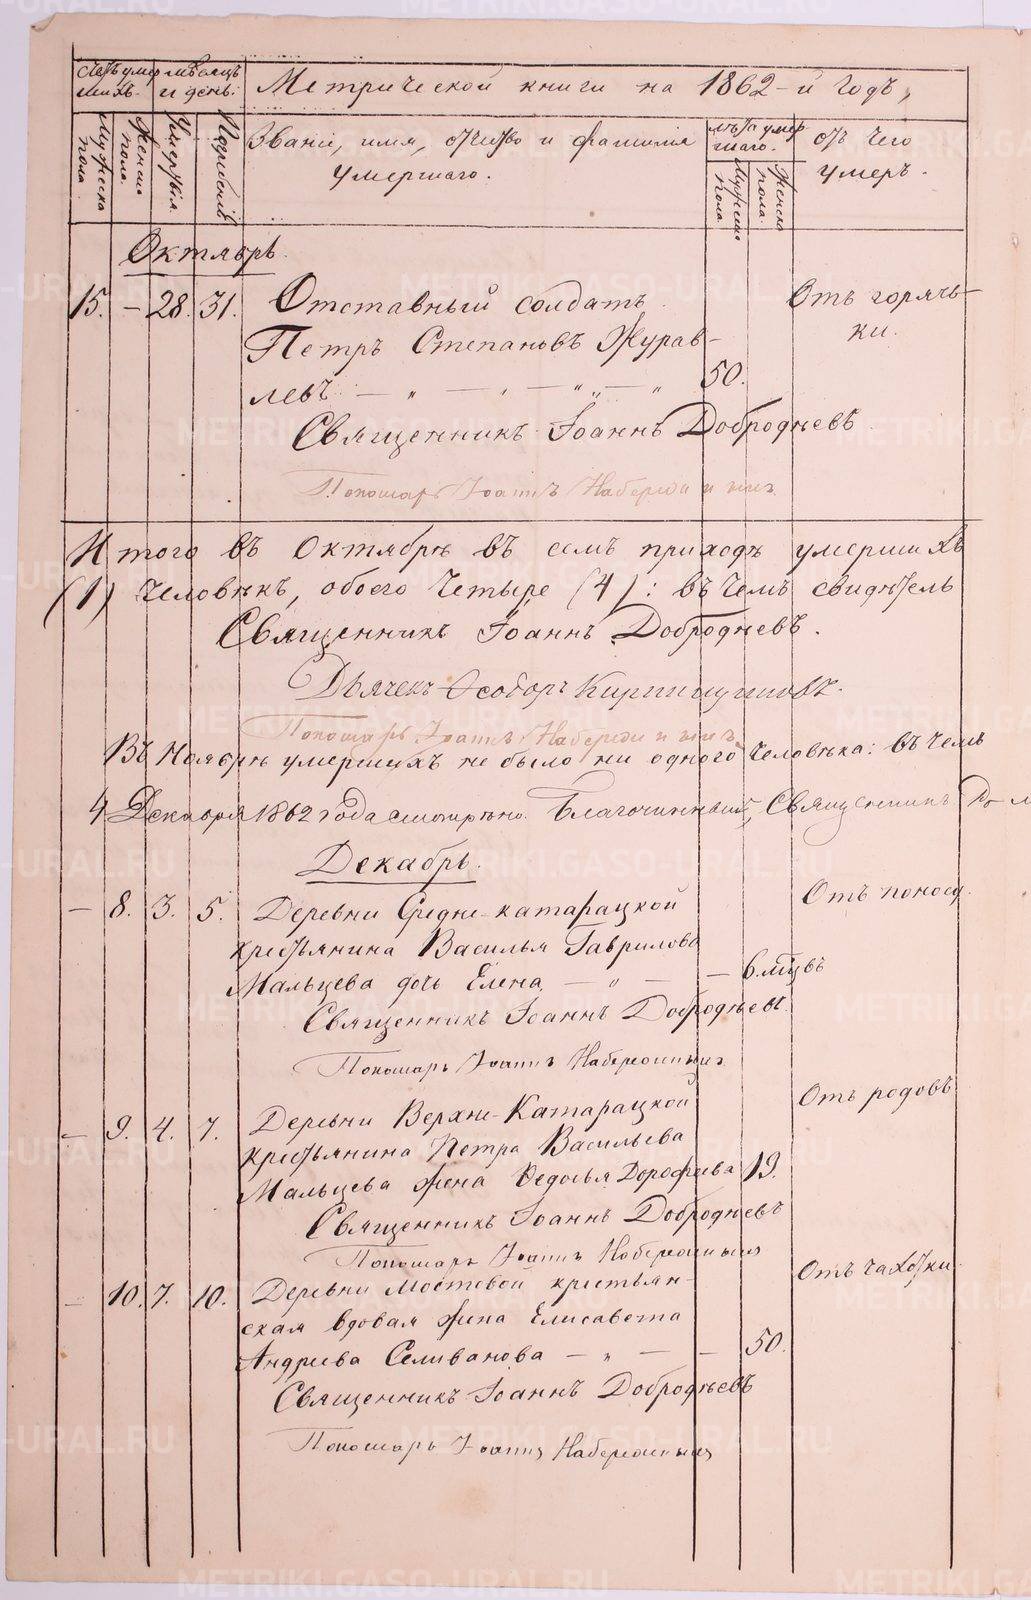 Счетъ умер мѣсяцъ
шихъ. и день.
Метрической книги на 1862-й годъ,
Мужеска пола
Женска пола.
Умертвія.
Погребенія
Званіе, имя, отчество и фамилія
умершаго.
лѣта умер
шаго.
Мужеска пола.
Женска пола.
Отъ чего
умеръ.
Октябрь.
15. – 28. 31. Отставный солдатъ Отъ горяч-
Петръ Степановъ Журав- ки.
левъ — „ — „ — „ — „ 50.
Священникъ Іоаннъ Добродѣевъ.
Пономарь Іоаннъ
Итого въ Октябрѣ въ семъ приходѣ умершихъ
(1) человѣкъ, обоего четыре (4): въ чемъ свидѣтель
Священникъ Іоаннъ Добродѣевъ.
Дьячекъ Ѳеодоръ
Пономарь Іоаннъ
Въ Ноябрѣ умершихъ не было ни одного человѣка: въ чемъ
4 Декабря 1862 года смотрѣно. Благочинный, Священникъ
Декабрь.
– 8. 3. 5. Деревни Средне-катарацкой Отъ поносу.
крестьянина Василья Гаврилова
Мальцева дочь Елена — „ — — 6.мцвъ
Священникъ Іоаннъ Добродѣевъ.
Пономарь Іоаннъ Набережныхъ
– 9. 4. 7. Деревни Верхне-Катарацкой Отъ родовъ
крестьянина Петра Васильева
Мальцева жена Ѳедосья Дорофѣева 19.
Священникъ Іоаннъ Добродѣевъ
Пономарь Іоаннъ Набережныхъ
– 10. 7. 10. Деревни Мостовой крестьян- Отъ чахотки.
ская вдовая жена Елисавета
Андреева Селиванова — „ — — 50.
Священникъ Іоаннъ Добродѣевъ
Пономарь Іоаннъ Набережныхъ
METRIKI.GASO-URAL.RU